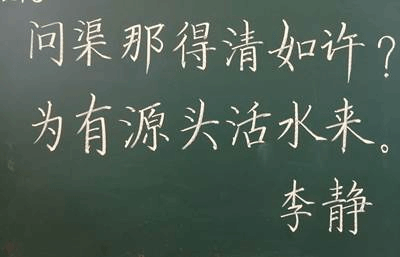 问渠那得清如许？
为有源头活水来。
李静